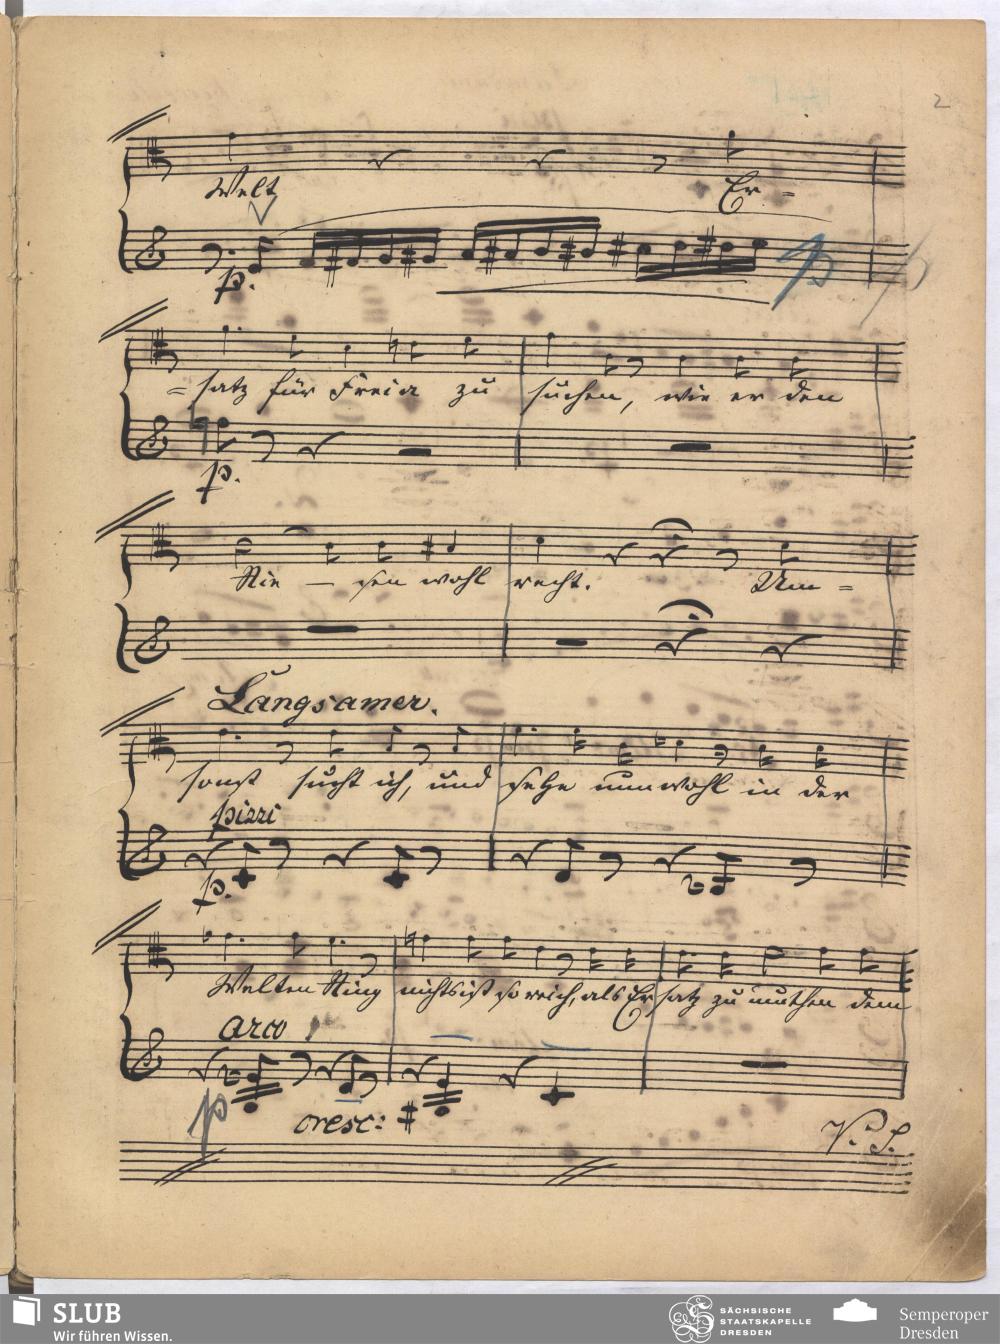 2
Welt Er-
p.
p
p
=satz für Freia zu suchen, wie er den
p.
Rie — sen wohl recht. Um=
Langsamer.
sonst sucht ich, und sehe nun wohl in der
pizzi
p.
Welten Ring nichts ist so reich, als Ersatz zu muthen dem
arco
p
cresc:
V. S.
SLUB
Wir führen Wissen.
SÄCHSISCHE
STAATSKAPELLE
DRESDEN
Semperoper
Dresden